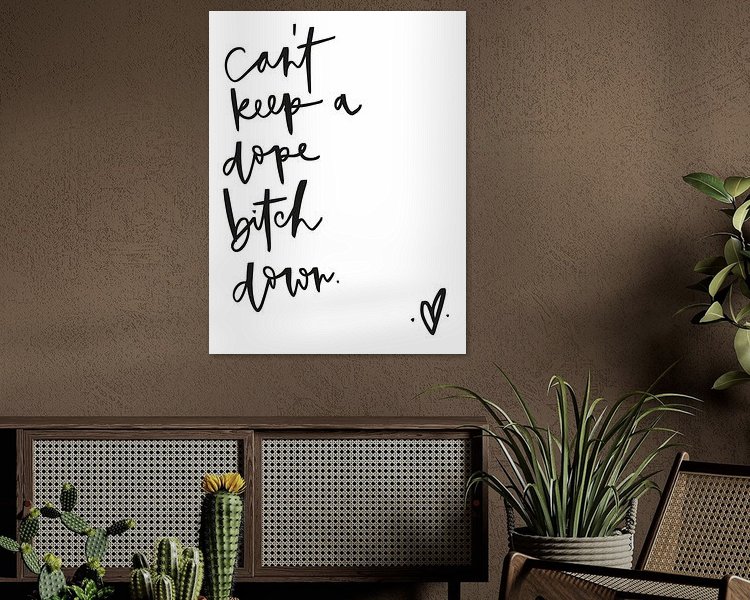 can't
keep a
dope
bitch
down.